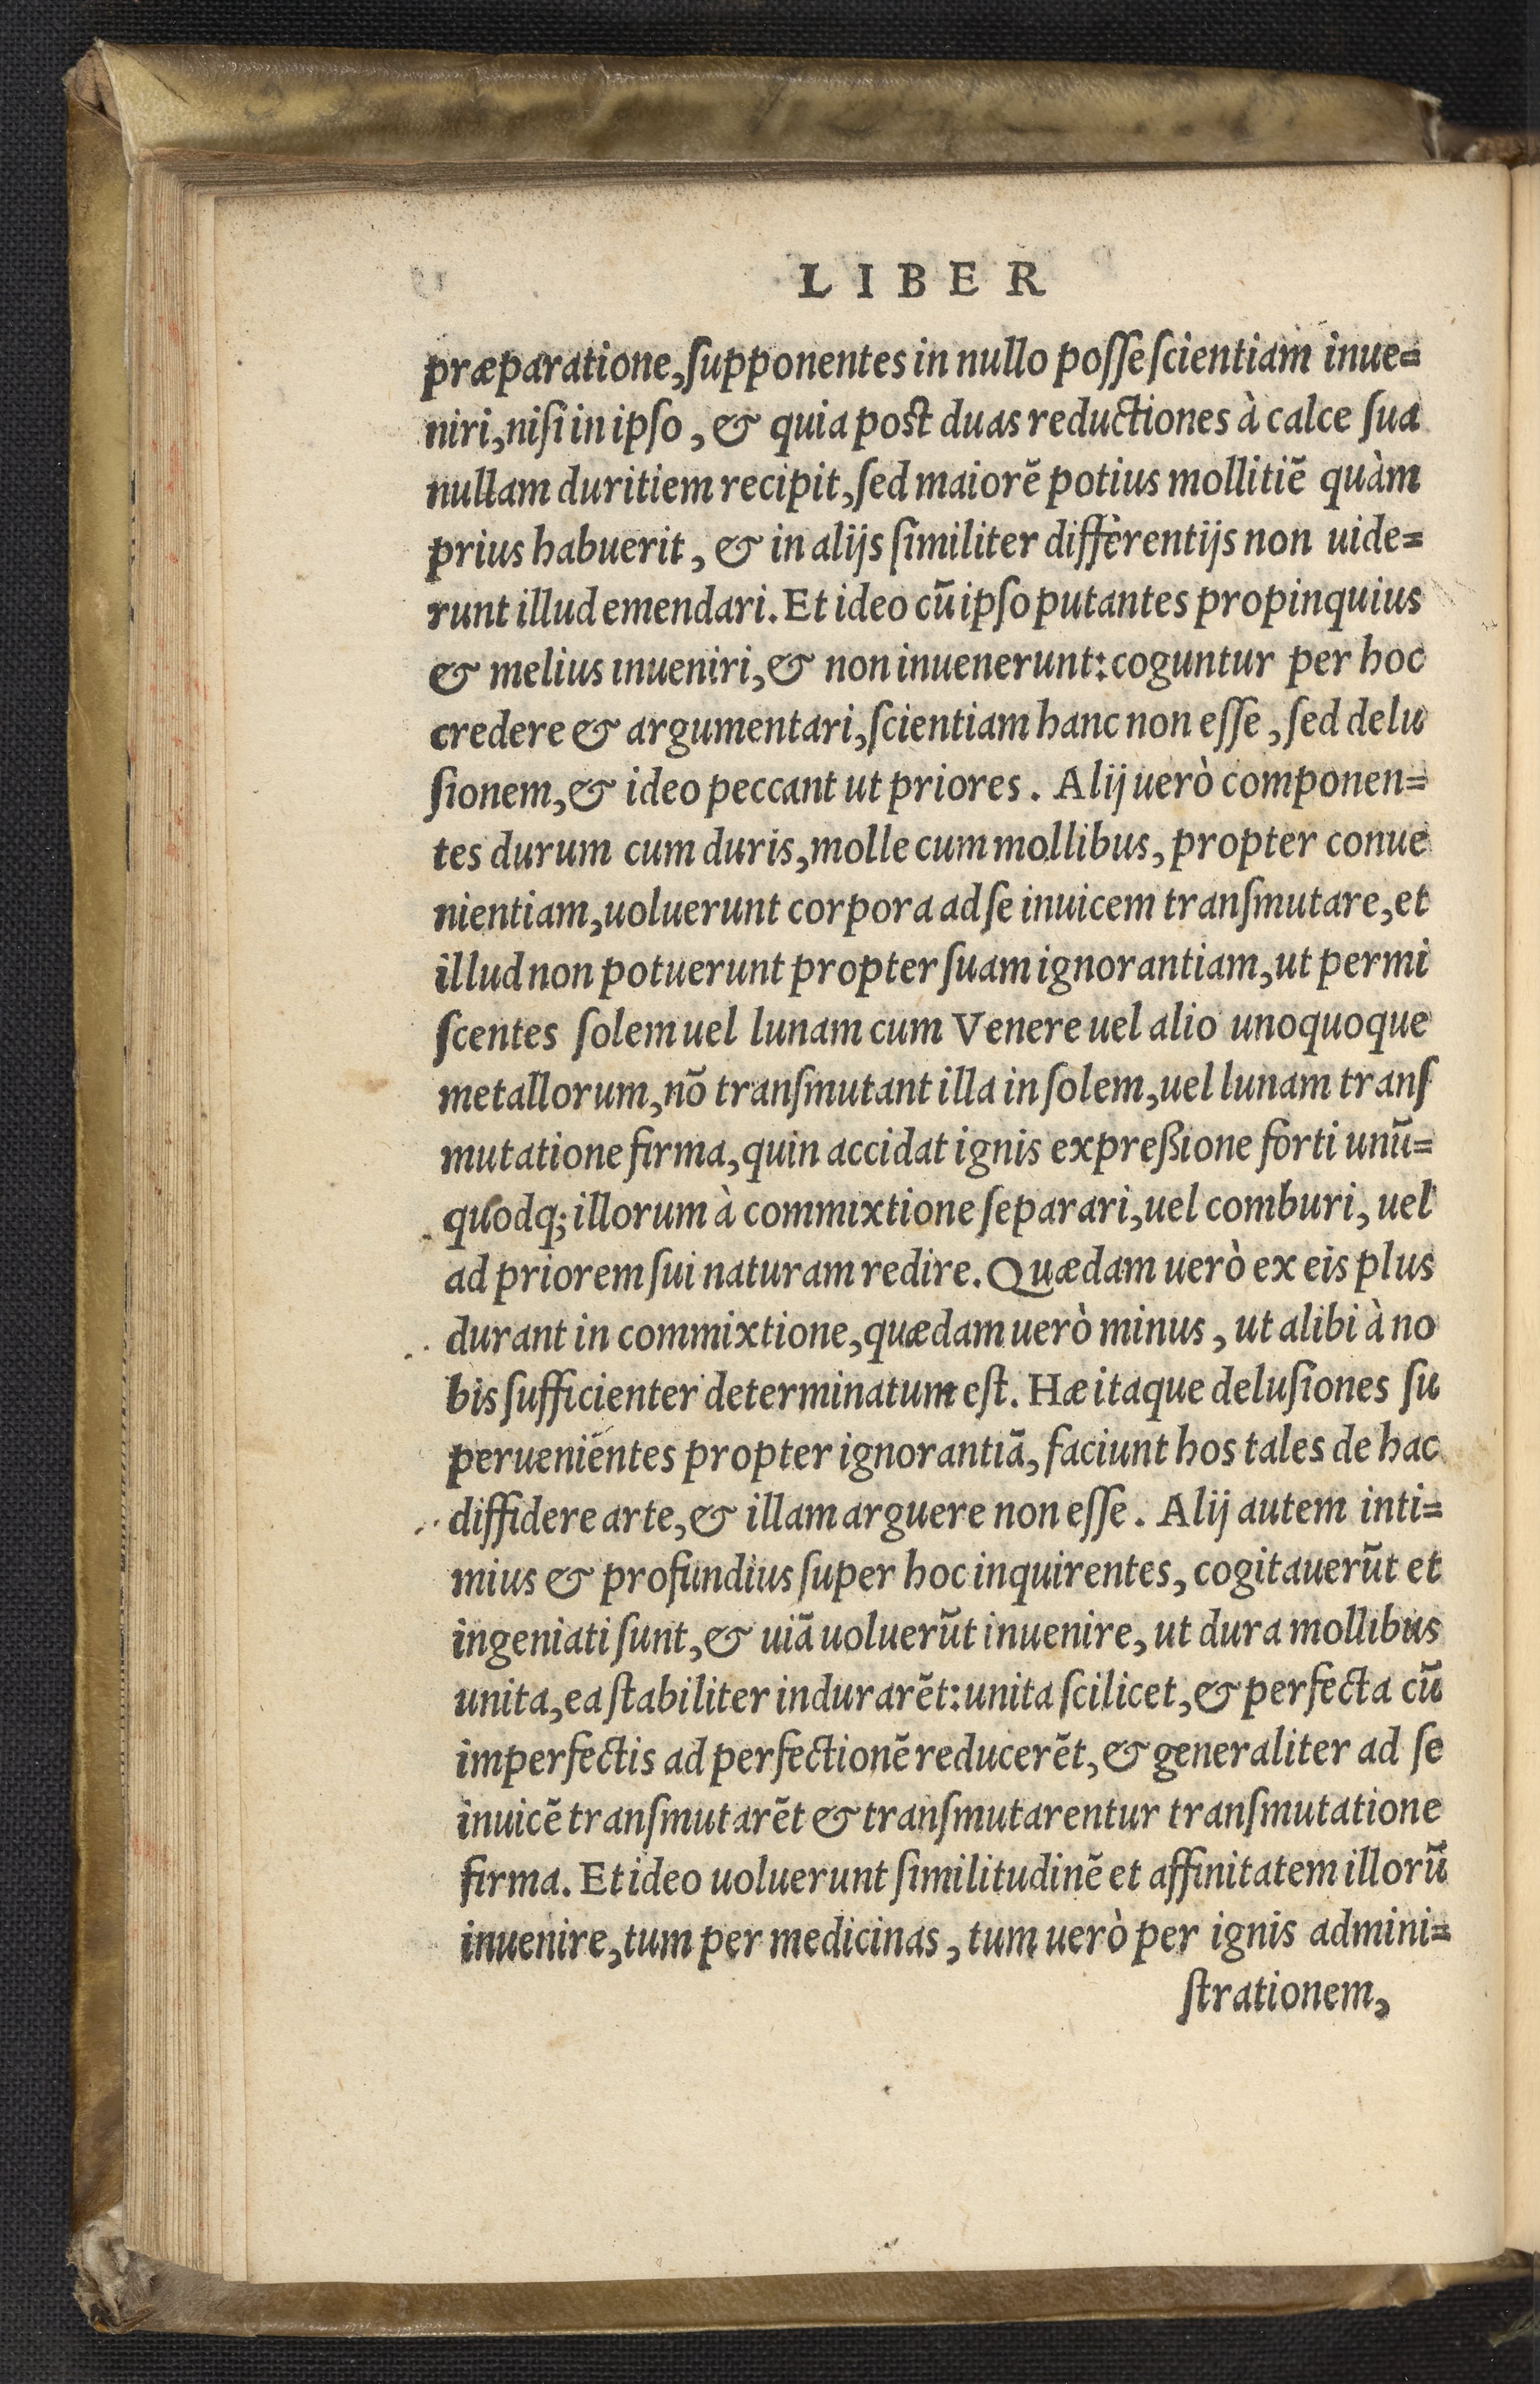 LIBER
præparatione, ſupponentes in nullo poſſe ſcientiam inue=
niri, niſi in ipſo, & quia poſt duas reductiones à calce ſua
nullam duritiem recipit, ſed maiorē potius mollitiē quàm
prius habuerit, & in alijs ſimiliter differentijs non uide=
runt illud emendari. Et ideo cū ipſo putantes propinquius
& melius inueniri, & non inuenerunt: coguntur per hoc
credere & argumentari, ſcientiam hanc non eſſe, ſed delu
ſionem, & ideo peccant ut priores. Alij uerò componen=
tes durum cum duris, molle cum mollibus, propter conue
nientiam, uoluerunt corpora ad ſe inuicem tranſmutare, et
illud non potuerunt propter ſuam ignorantiam, ut permi
ſcentes ſolem uel lunam cum Venere uel alio unoquoque
metallorum, nō tranſmutant illa in ſolem, uel lunam tranſ
mutatione firma, quin accidat ignis expreßione forti unū=
quodq; illorum à commixtione ſeparari, uel comburi, uel
ad priorem ſui naturam redire. Quædam uerò ex eis plus
durant in commixtione, quædam uerò minus, ut alibi à no
bis ſufficienter determinatum eſt. Hæ itaque deluſiones ſu
peruenientes propter ignorantiā, faciunt hos tales de hac
diffidere arte, & illam arguere non eſſe. Alij autem inti=
mius & profundius ſuper hoc inquirentes, cogitauerūt et
ingeniati ſunt, & uiā uoluerūt inuenire, ut dura mollibus
unita, ea ſtabiliter indurarēt: unita ſcilicet, & perfecta cū
imperfectis ad perfectionē reducerēt, & generaliter ad ſe
inuicē tranſmutarēt & tranſmutarentur tranſmutatione
firma. Et ideo uoluerunt ſimilitudinē et affinitatem illorū
inuenire, tum per medicinas, tum uerò per ignis admini=
ſtrationem,